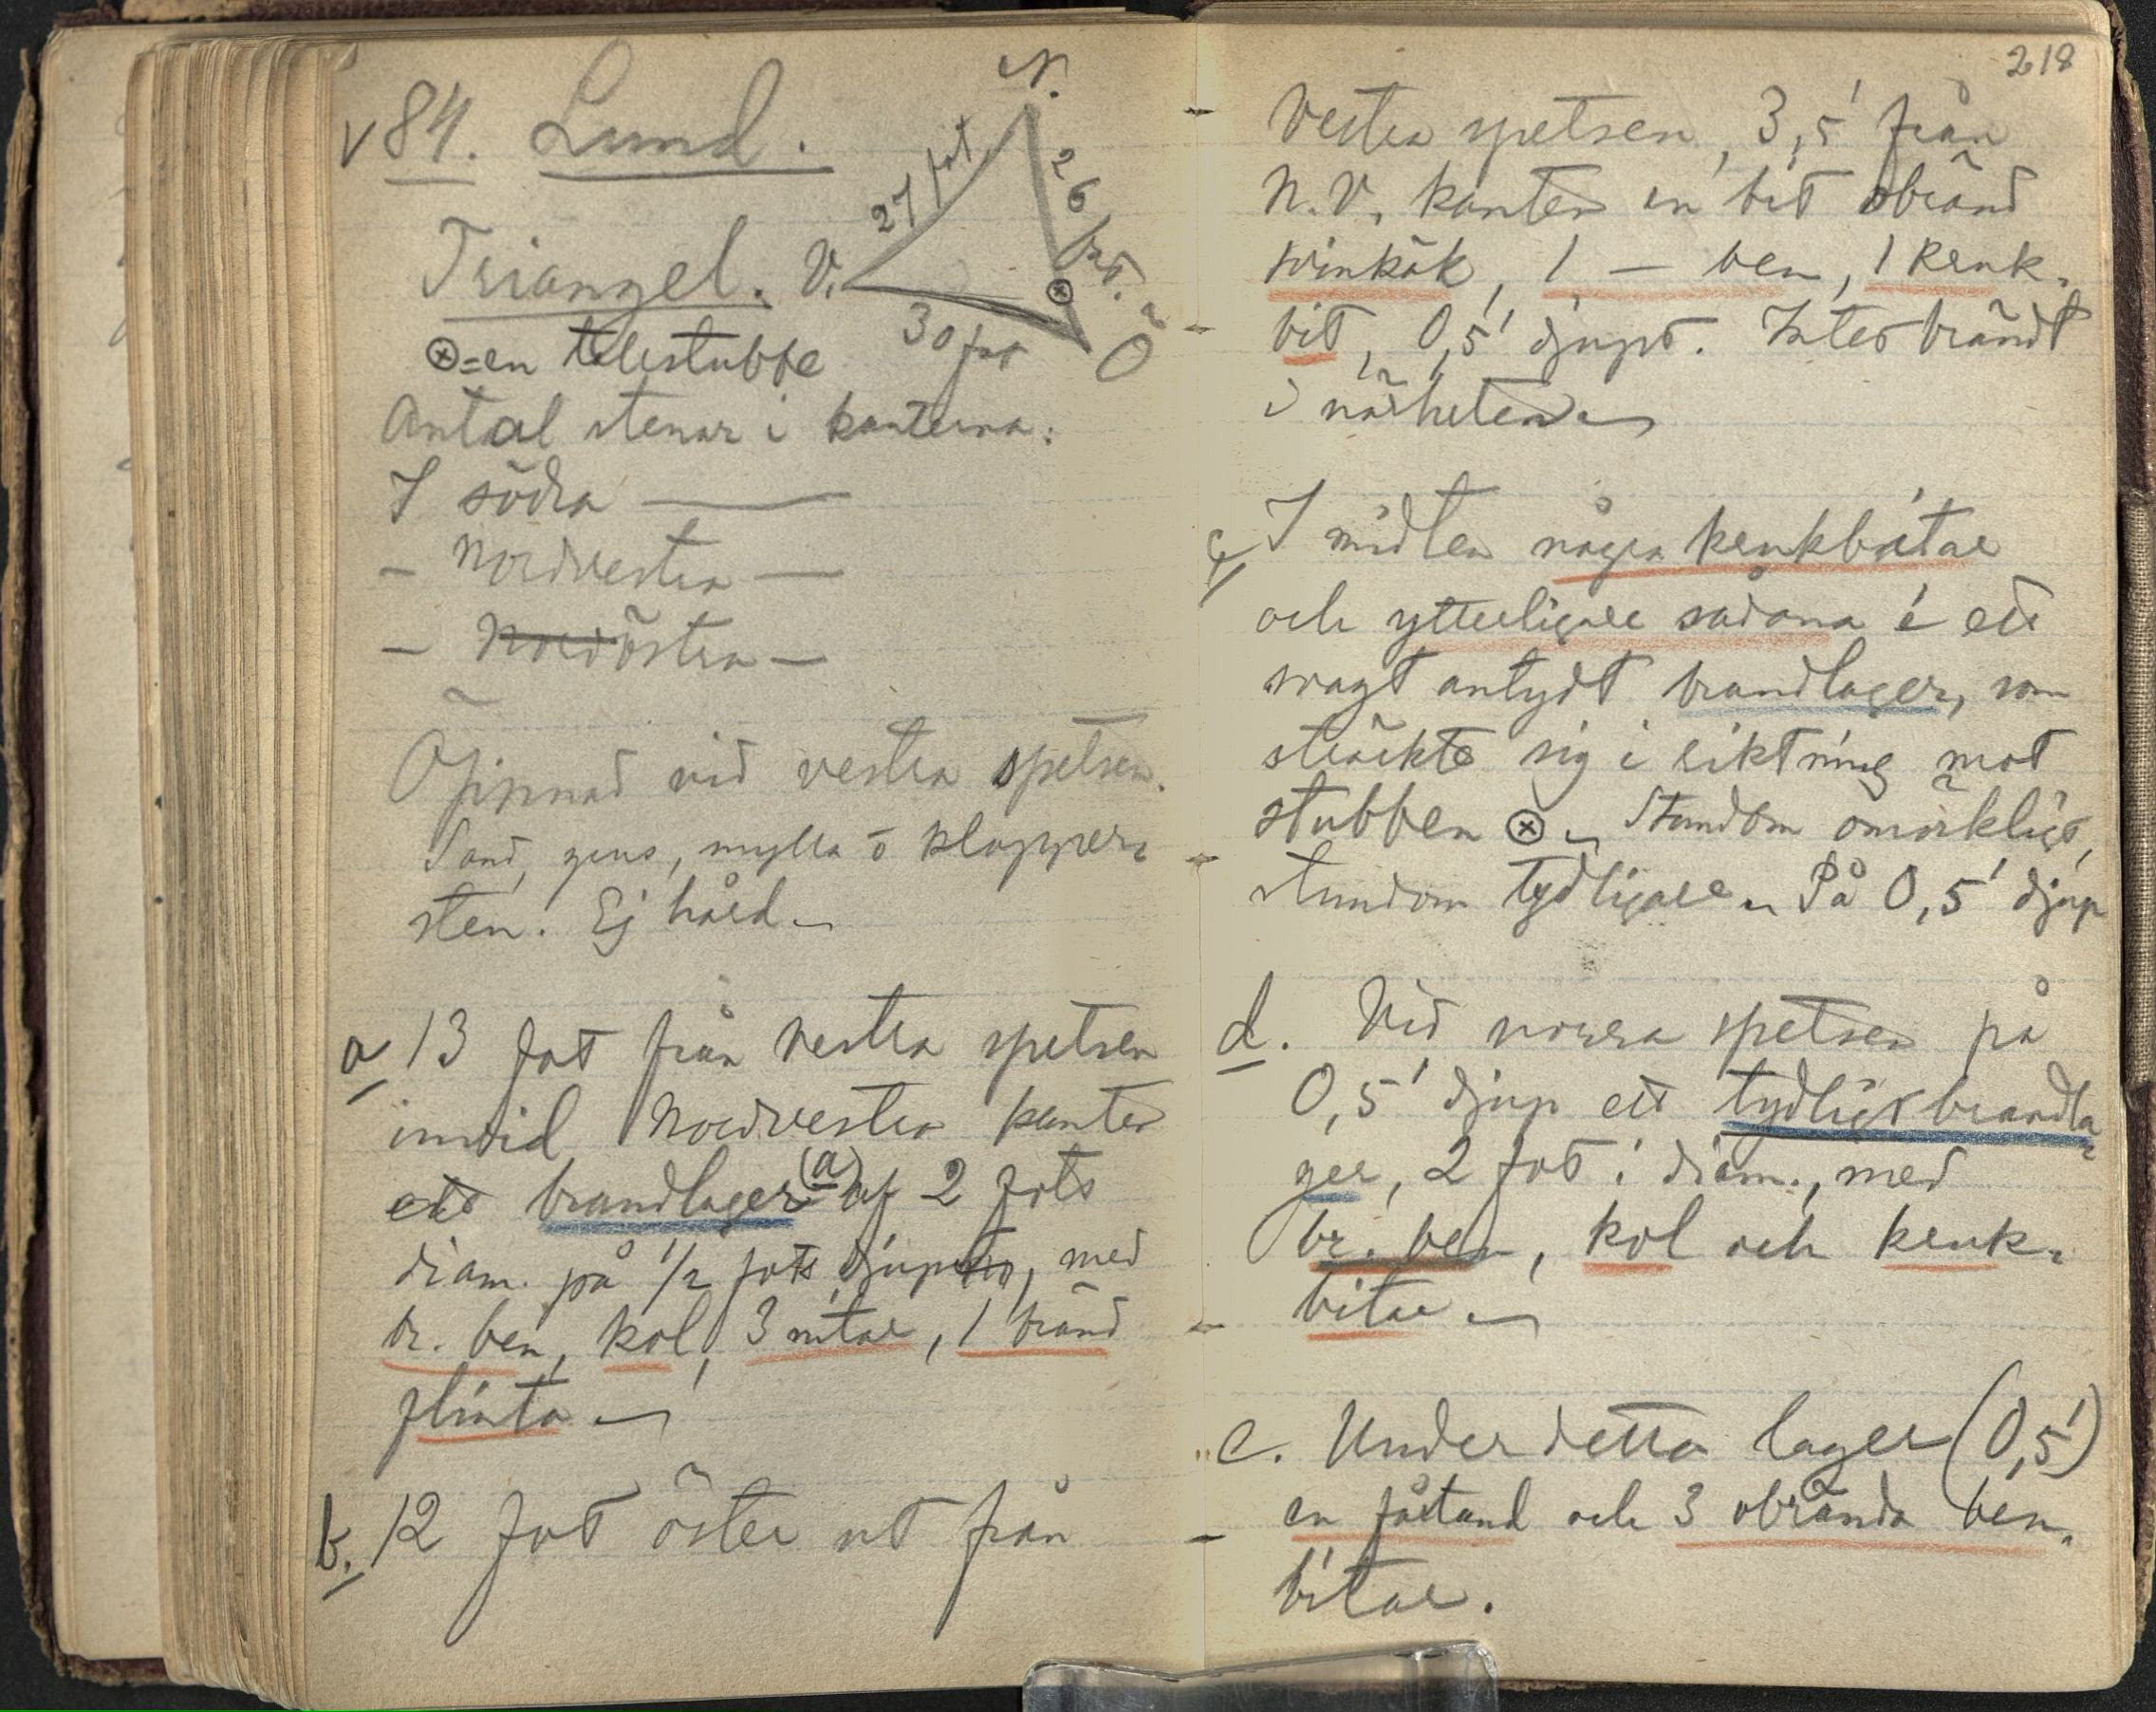 v 84. Lund.
N.
27 fot
26 fot.
Triangel. V.
30 fot
Ö
⊗ = en telestubbe
Antal stenar i kanterna:
I södra —
- Nordvestra —
- Nordöstra —
Öppnad vid vestra spetsen.
Sand, grus, mylla o klapper-
sten. Ej hård.
a 13 fot från vestra spetsen
invid Nordvestra kanten
ett brandlager (a) af 2 fots
diam. på 1/2 fots djup, med
br. ben, kol, 3 nitar, 1 bränd
flinta
b. 12 fot öster ut från
218
Vestra spetsen, 3,5' från
N.V. kanten en bit obränd
svinkäk, 1 — ben, 1 kruk-
bit, 0,5' djupt. Intet brändt
i närheten
c I midten några krukbitar
och ytterligare sådana i ett
svagt antydt brandlager, som
sträckte sig i riktning mot
stubben ⊗. Stundom omärkligt,
stundom tydligare. På 0,5' djup
d. Vid norra spetsen på
0,5' djup ett tydligt brandla-
ger, 2 fot i diam., med
br. ben, kol och kruk-
bitar
e. Under detta lager (0,5')
en fåtand och 3 obrända ben-
bitar.